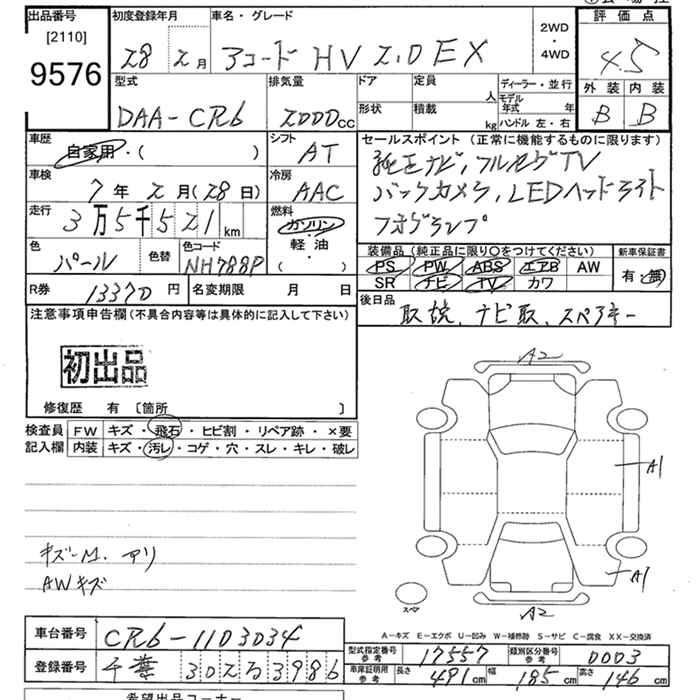 出品番号
[2110]
9576
初度登録年月
28 2月
車名・グレード
アコード HV 2.0EX
2WD
・
4WD
評価点
4.5
外装 内装
B B
型式
DAA-CR6
排気量
2000cc
ドア
形状
定員
人
積載
kg
ディーラー・並行
モデル年式 年
ハンドル 左・右
車歴
自家用・( )
シフト
AT
車検
7年2月(28日)
冷房
AAC
走行
3万5千521km
燃料
ガソリン・軽油
( )
色
パール
色替
色コード
NH788P
R券
13370円
名変期限 月 日
セールスポイント (正常に機能するものに限ります)
純正ナビ, フルセグTV
バックカメラ, LEDヘッドライト
フォグランプ
装備品(純正品に限り○をつけてください)
新車保証書
PS PW ABS エアB AW
SR ナビ TV カワ
有・無
後日品
取説、ナビ取、スペアキー
注意事項申告欄(不具合内容等は具体的に記入して下さい)
初出品
修復歴 有 〔箇所 〕
検査員記入欄
FW キズ・飛石・ヒビ割・リペア跡・×要
内装 キズ・汚レ・コゲ・穴・スレ・キレ・破レ
キズーM. アリ
AWキズ
A2
A1
A1
A2
スペア
A-キズ E-エクボ U-凹み W-補修跡 S-サビ C-腐食 XX-交換済
車台番号
CR6-1103034
登録番号
千葉 302 る 3986
型式指定番号参考
17557
類別区分番号参考
0003
車庫証明用参考
長さ 491cm 幅 185cm 高さ 146cm
希望出品コーナー